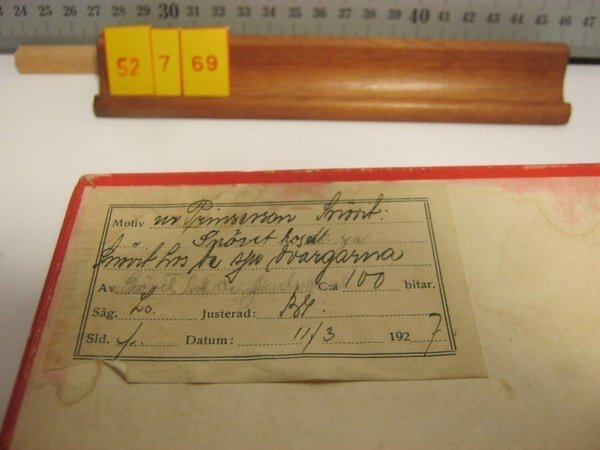 24 25 26 27 28 29 30 31 32 33 34 35 36 37 38 39 40 41 42 43 44 45 46 47
52 7 69
Motiv ur Prinsessan Snövit.
Snövit hos de sju dvärgarna
Av C:a 100 bitar.
Såg. Justerad:
Sld. Datum: 11/3 1927